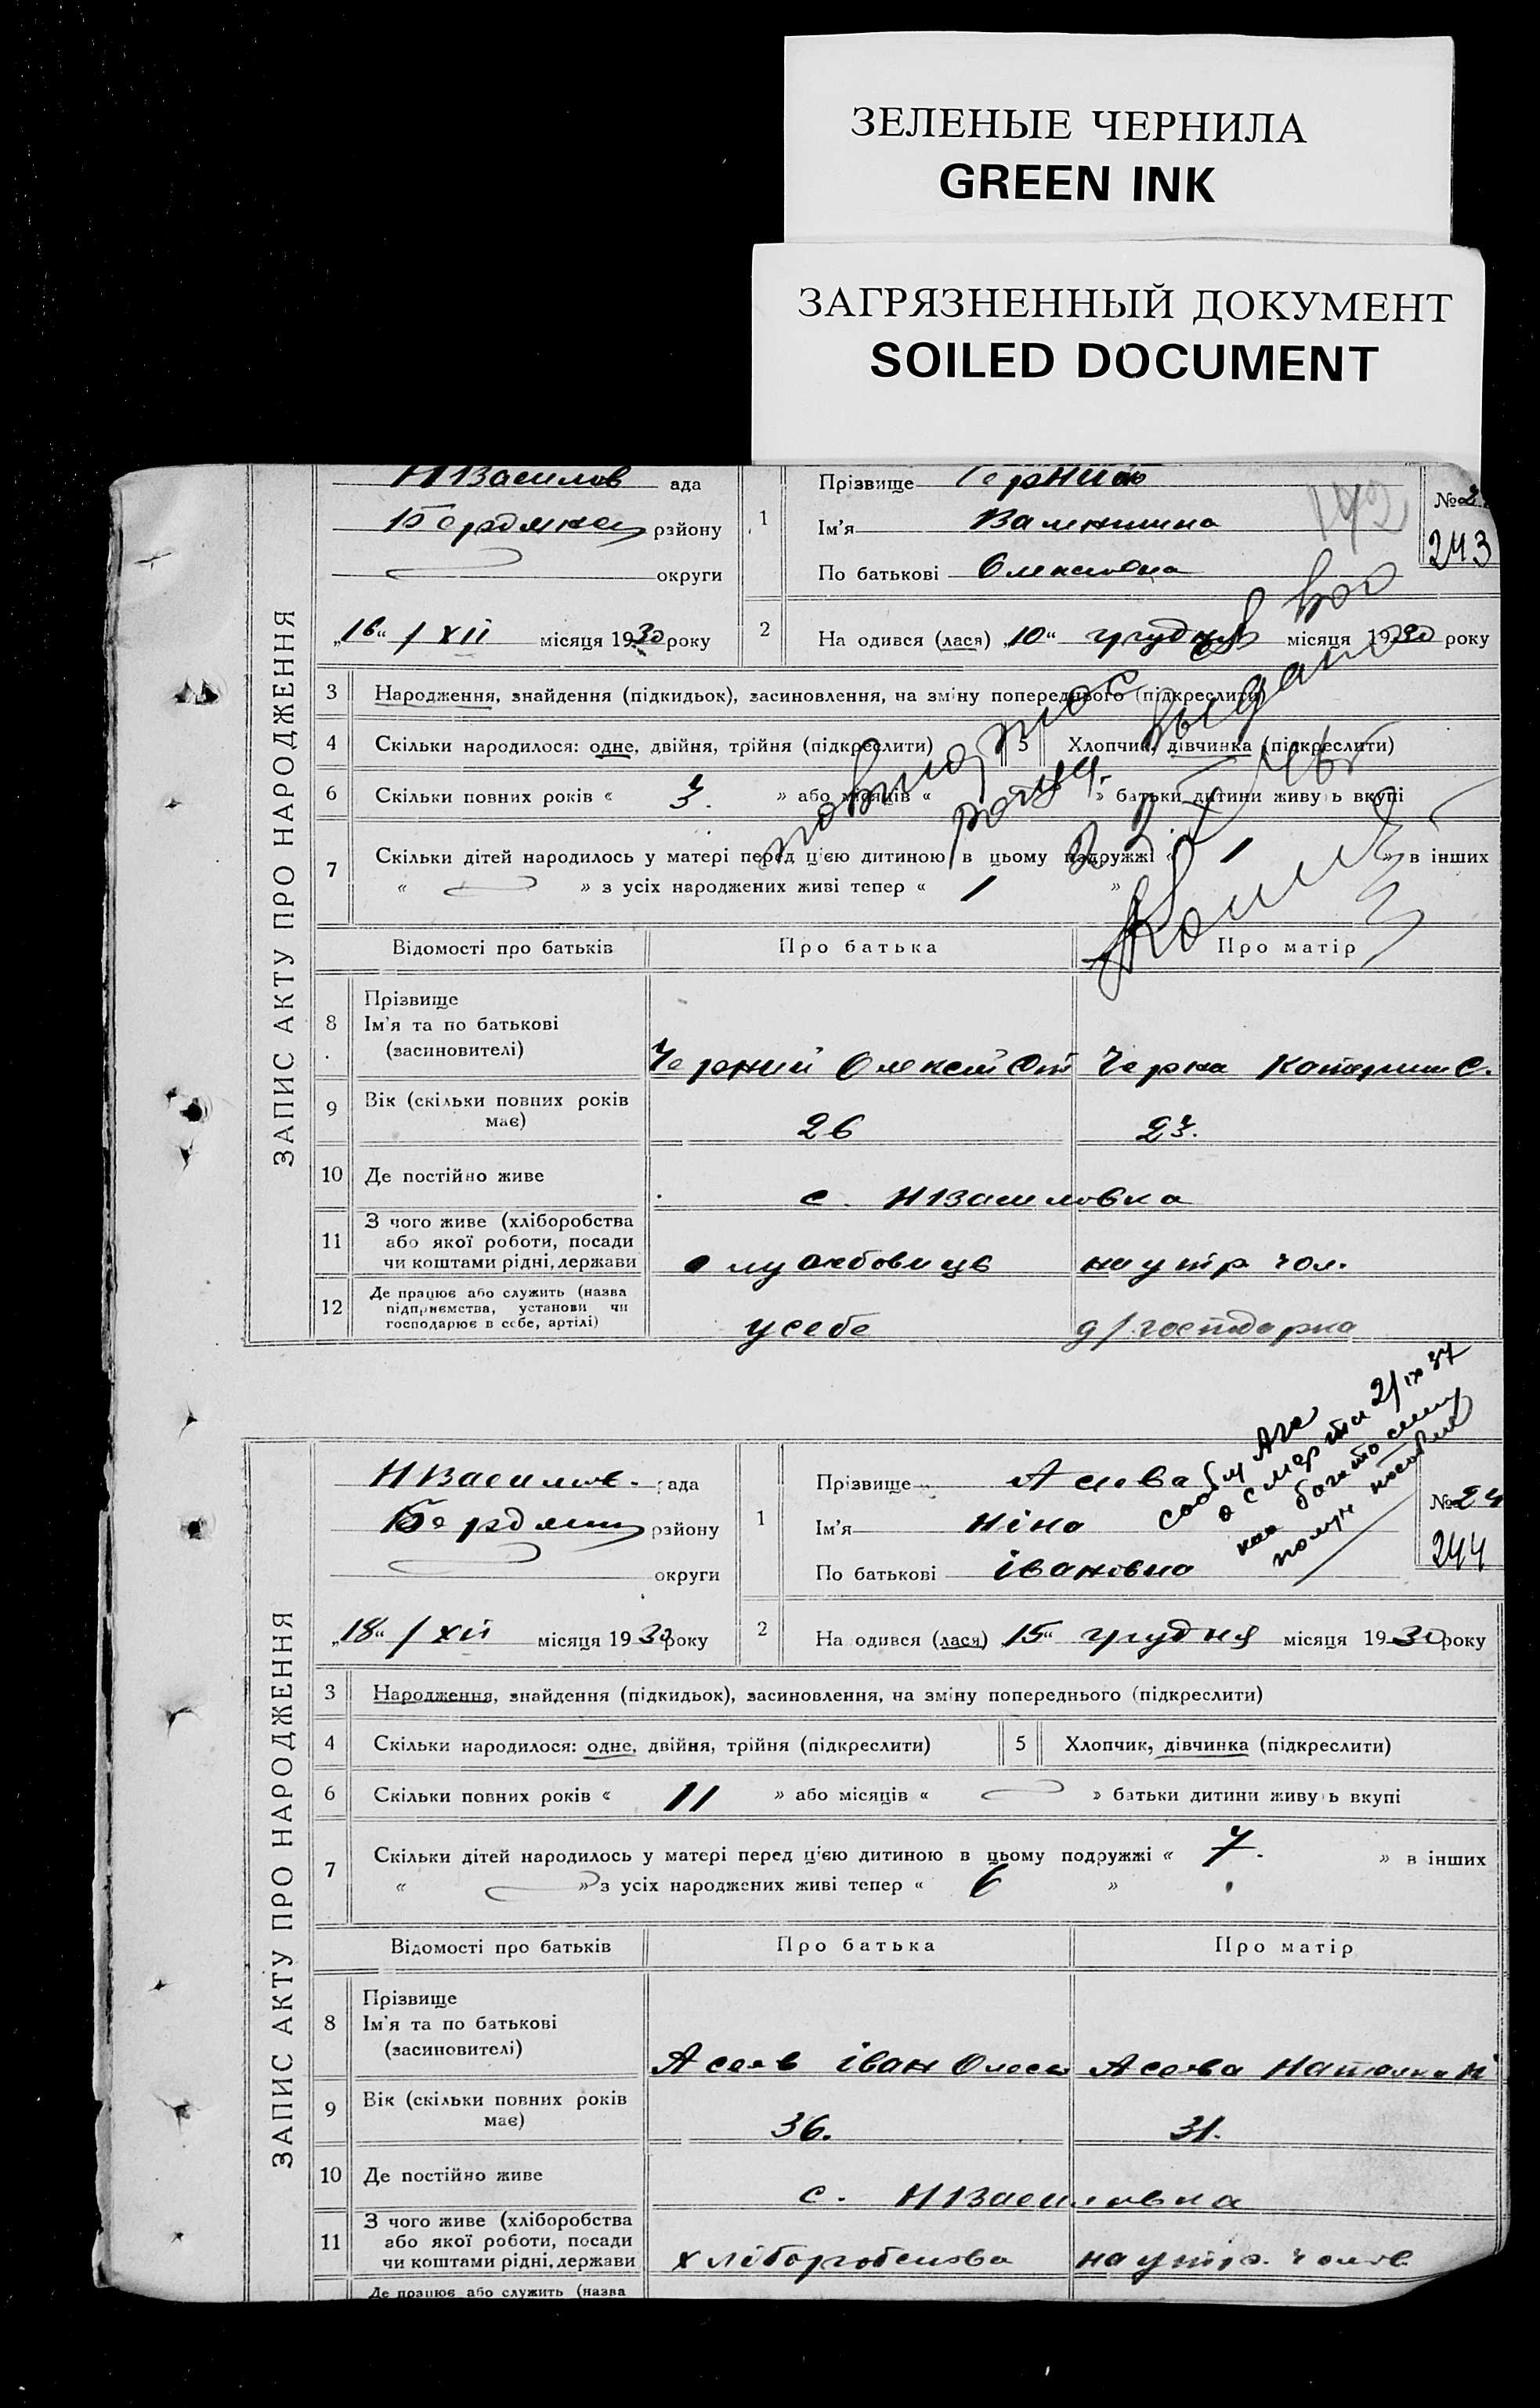 ЗЕЛЕНЫЕ ЧЕРНИЛА
GREEN INK
ЗАГРЯЗНЕННЫЙ ДОКУМЕНТ
SOILED DOCUMENT
ЗАПИС АКТУ ПРО НАРОДЖЕННЯ
НВасилов ада
району
округи
„16“ / XII місяця 1930 року
1
Прізвище
Ім'я Валентина
По батькові
142
№
243
2
На одився (лася) „10“ грудня місяця 1930 року
3 Народження, знайдення (підкидьок), засиновлення, на зміну попереднього (підкреслити)
4 Скільки народилося: одне, двійня, трійня (підкреслити) 5 Хлопчик, дівчинка (підкреслити)
6 Скільки повних років « 3. » або місяців « » батьки дитини живу ь вкупі
7 Скільки дітей народилось у матері перед цією дитиною в цьому подружжі « 1 » в інших
« » з усіх народжених живі тепер « 1 »
повторное св во
выдано
Відомості про батьків Про батька Про матір
8 Прізвище
Ім'я та по батькові
(засиновителі)
Черний Олексій Черна С.
9 Вік (скільки повних років
має)
26 23.
10 Де постійно живе
с. НВасиловка
11 З чого живе (хліборобства
або якої роботи, посади
чи коштами рідні, держави
службовиць на утр. чол.
12 Де працює або служить (назва
підприємства, установи чи
господарює в себе, артілі)
у себе д/господарка
ЗАПИС АКТУ ПРО НАРОДЖЕННЯ
НВасилов. ада
району
округи
„18“ / XII місяця 1930 року
1
Прізвище Асева
Ім'я Ніна
По батькові Івановна
№ 24
244
о смерти 21/IX 37
2
На одився (лася) „15“ грудня місяця 1930 року
3 Народження, знайдення (підкидьок), засиновлення, на зміну попереднього (підкреслити)
4 Скільки народилося: одне, двійня, трійня (підкреслити) 5 Хлопчик, дівчинка (підкреслити)
6 Скільки повних років « 11 » або місяців « » батьки дитини живу ь вкупі
7 Скільки дітей народилось у матері перед цією дитиною в цьому подружжі « 7. » в інших
« » з усіх народжених живі тепер « 6 »
Відомості про батьків Про батька Про матір
8 Прізвище
Ім'я та по батькові
(засиновителі)
Асеев Іван Асеева Наталка
9 Вік (скільки повних років
має)
36. 31.
10 Де постійно живе
с. НВасиловка
11 З чого живе (хліборобства
або якої роботи, посади
чи коштами рідні, держави
хліборобства на утр. чолов.
Де працює або служить (назва